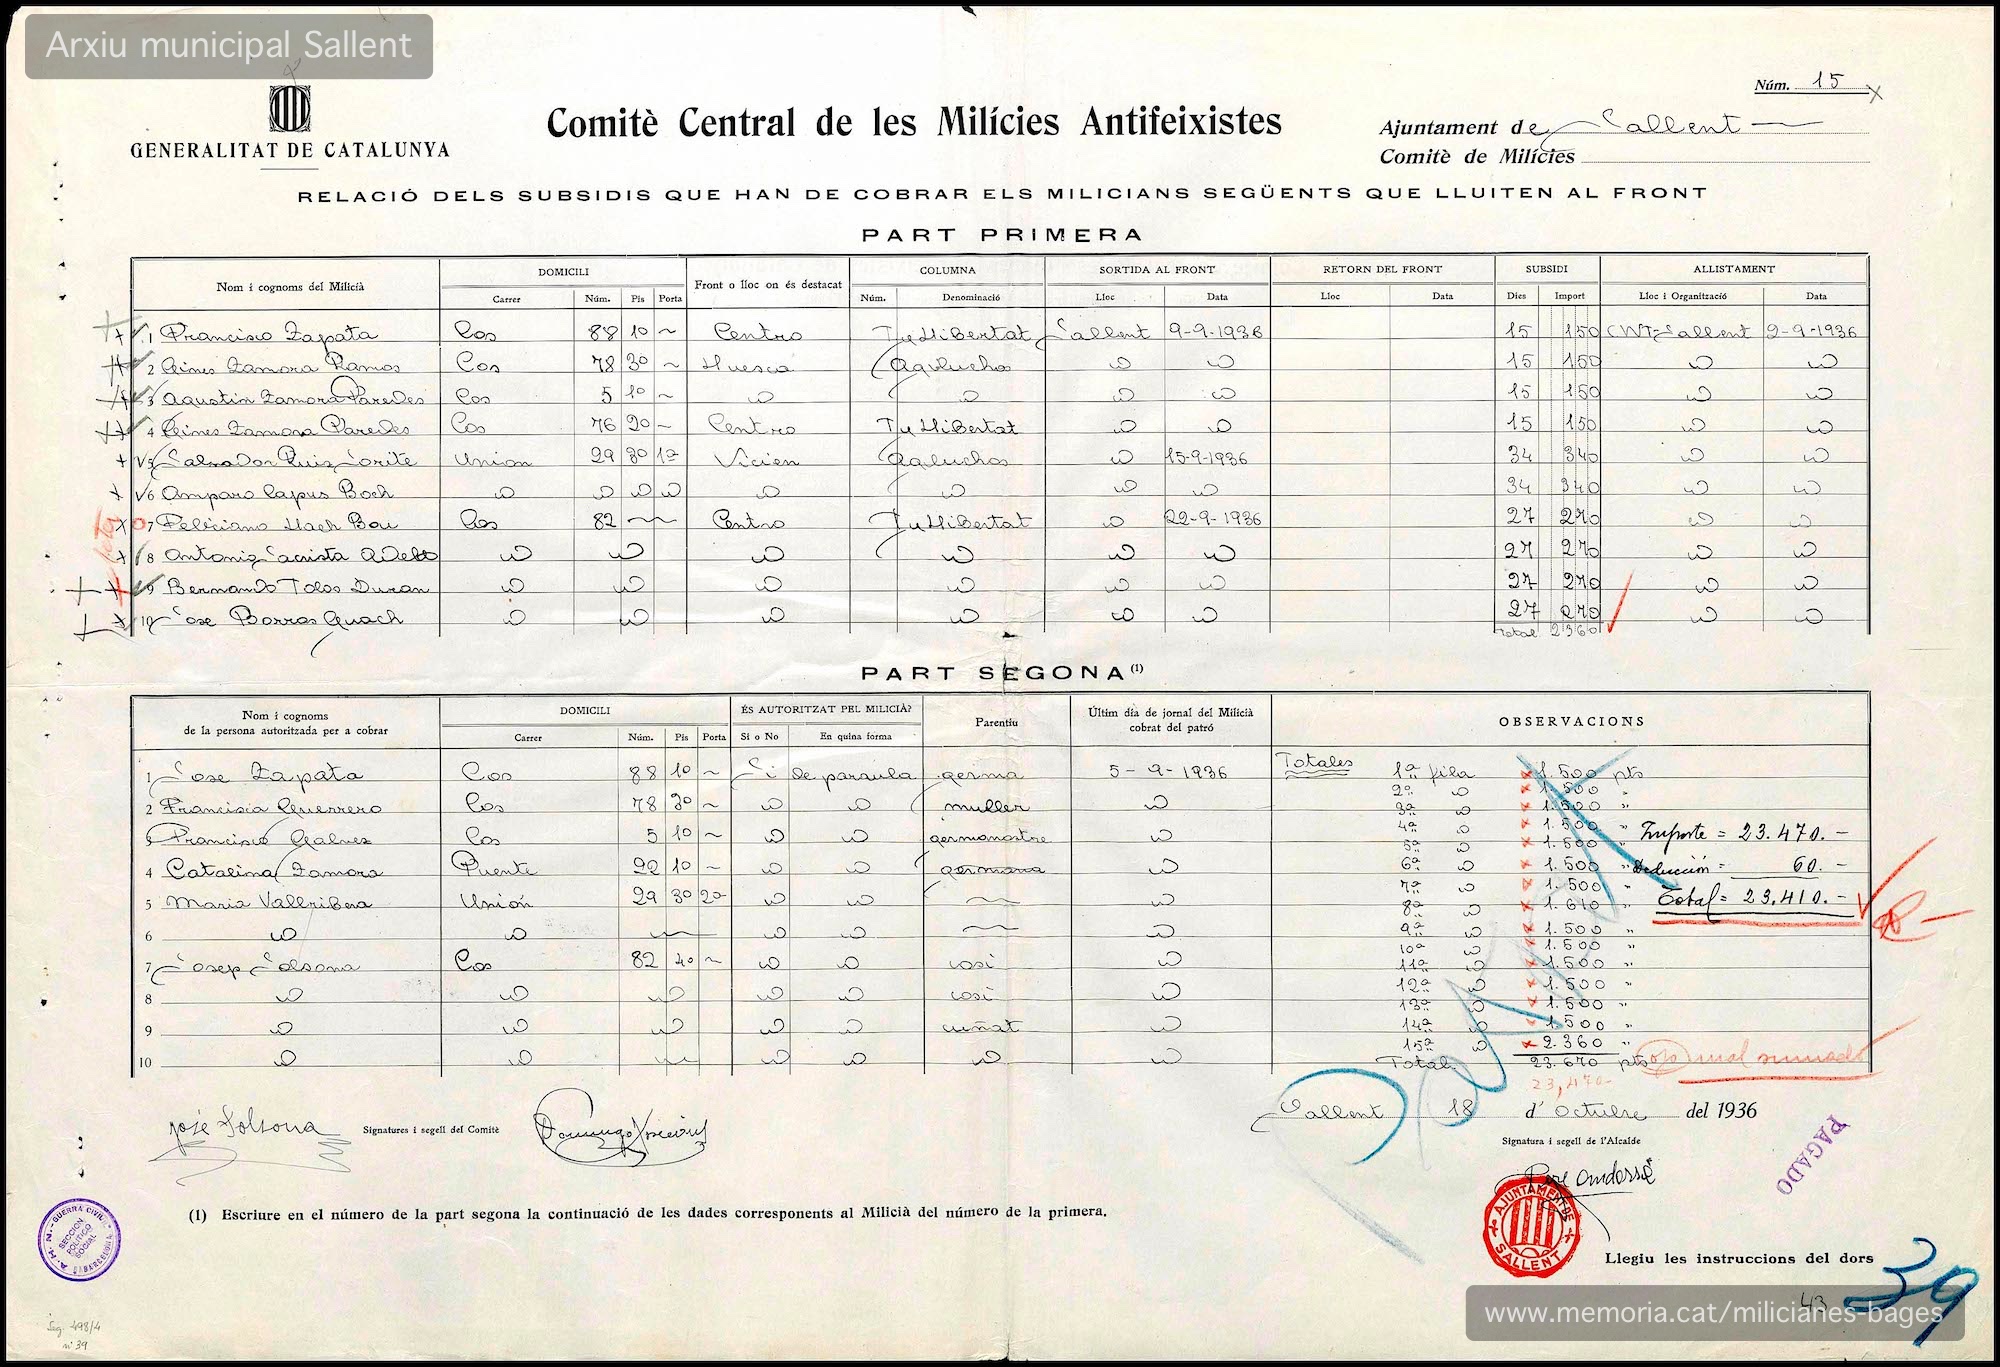 Arxiu municipal Sallent
Núm. 15
GENERALITAT DE CATALUNYA
Comitè Central de les Milícies Antifeixistes
Ajuntament de Sallent
Comitè de Milícies
RELACIÓ DELS SUBSIDIS QUE HAN DE COBRAR ELS MILICIANS SEGÜENTS QUE LLUITEN AL FRONT
PART PRIMERA
Nom i cognoms del Milicià DOMICILI Front o lloc on és destacat COLUMNA SORTIDA AL FRONT RETORN DEL FRONT SUBSIDI ALLISTAMENT
Carrer Núm. Pis Porta Núm. Denominació Lloc Data Lloc Data Dies Import Lloc i Organització Data
1 Francisco Zapata Cos 88 1º ~ Centro T y Llibertat Sallent 9-9-1936 15 150 CNT-Sallent 9-9-1936
2 Gines Zamora Ramos Cos 78 3º ~ Huesca Aguiluchos ω ω 15 150 ω ω
3 Agustin Zamora Paredes Cos 5 1º ~ ω ω ω ω 15 150 ω ω
4 Gines Zamora Paredes Cos 76 2º ~ Centro T y Llibertat ω ω 15 150 ω ω
5 Salvador Ruiz Sorite Unión 29 3º 1ª Vicien Aguluchos ω 15-9-1936 34 340 ω ω
6 Amparo Capus Boch ω ω ω ω ω ω ω ω 34 340 ω ω
7 Feliciano Llach Bou Cos 82 ~ ~ Centro T y Llibertat ω 22-9-1936 27 270 ω ω
8 Antonia Sacrista ω ω ω ω ω ω 27 270 ω ω
9 Bernardo Tolos Duran ω ω ω ω ω ω 27 270 ω ω
10 Jose Borras Guach ω ω ω ω ω ω 27 270 ω ω
Total 2360
PART SEGONA (1)
Nom i cognoms de la persona autoritzada per a cobrar DOMICILI ÉS AUTORITZAT PEL MILICIÀ? Parentiu Últim dia de jornal del Milicià cobrat del patró OBSERVACIONS
Carrer Núm. Pis Porta Si o No En quina forma
1 Jose Zapata Cos 88 1º ~ Si de paraula germa 5-9-1936 Totales 1ª fila 1.500 pts
2ª ω 1.500 "
2 Francisca Guerrero Cos 78 3º ~ ω ω muller ω 3ª ω 1.500 "
4ª ω 1.500 "
Importe = 23.470.-
3 Francisco Galvez Cos 5 1º ~ ω ω germanastre ω 5ª ω 1.500
4 Catalina Zamora Puente 22 1º ~ ω ω germana ω 6ª ω 1.500 "
Deducción = 60.-
7ª ω 1.500
5 Maria Vallribera Unión 29 3º 2ª ω ω ~ ω 8ª ω 1.610 "
Total = 23.410.-
6 ω ω ~ ω ω ~ ω 9ª ω 1.500 "
10ª ω 1.500 "
7 Josep Solsona Cos 82 4º ~ ω ω cosi ω 11ª ω 1.500 "
8 ω ω ω ω ω cosi ω 12ª ω 1.500 "
13ª ω 1.500 "
9 ω ω ω ω ω cuñat ω 14ª ω 1.500 "
15ª ω 2.360 "
10 ω ω ~ ω ω ω ω Total 23.670 pts
ojo mal sumado
23,470-
Sallent 18 d' Octubre del 1936
José Solsona
Signatures i segell del Comitè
Signatura i segell de l'Alcalde
PAGADO
AJUNTAMENT DE SALLENT
(1) Escriure en el número de la part segona la continuació de les dades corresponents al Milicià del número de la primera.
A. H. N. - GUERRA CIVIL
SECCION POLITICO SOCIAL
Llegiu les instruccions del dors
39
43
www.memoria.cat/milicianes-bages
Leg. 498/4
nº 39